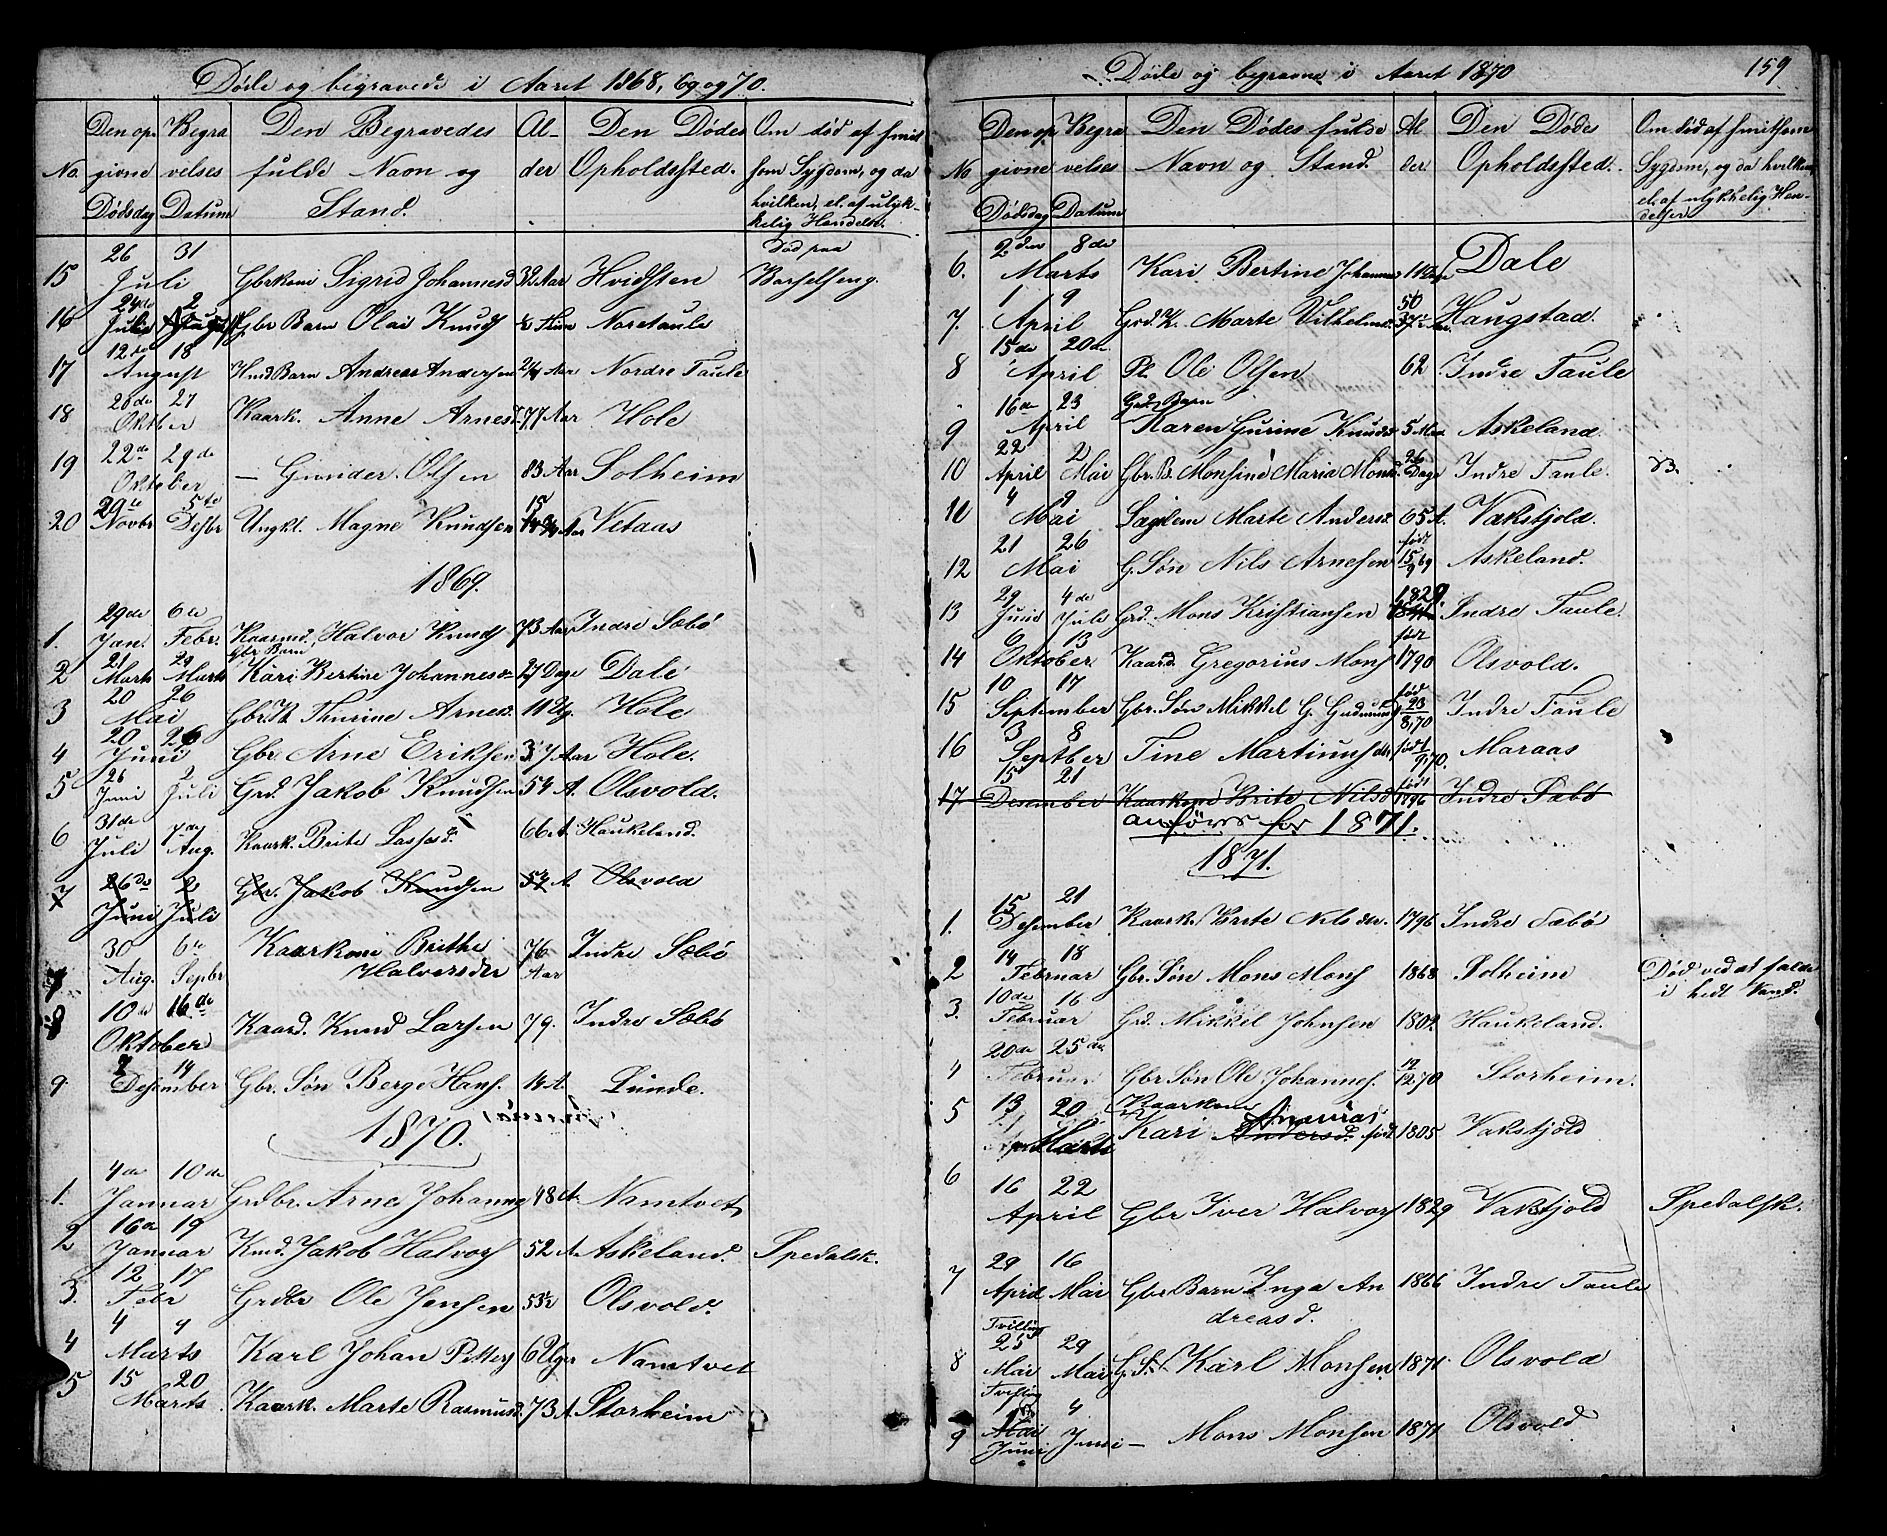 Døde og begravede i Aaret 1868, 69 og 70.
No. Den opgivne Dødsdag Begravelses Datum Den Begravedes fulde Navn og Stand. Alder Den Dødes Opholdssted. Om død af smitsom Sygdom, og da hvilken, el. af ulykkelig Hændelse.
15 26 Juli 31 Gbrkone Sigrid Johannesd 32 Aar Hvidsten Død paa Barselseng.
16 24de Juli 2 August Gbr Barn Olai Knuds ½ Time Noretaule
17 12te August 18 Husm Barn Andreas Andersen 2¼ Aar Nordre Taule
18 20de Oktber 27 Kaark. Anne Arnesd. 77 Aar Hole
19 22de Oktober 29de — Gunder Olsen 83 Aar Solheim
20 29de Novbr 5te Desbr Ungkl. Magne Knudsen 15 Aar Vetaas
1869.
1. 29de Jan. 6te Febr. Kaarmd. Halvor Knuds 73 Aar Indre Sæbø
2 21 Marts 29 Marts Gbr Barn Kari Bertine Johannesdr 27 Dage Dale
3 20 Mai 26 Gbr. B Thurine Arnesd. 11 Ug. Hole
4 20 Juni 26 Gbr. Arne Eriksen 37 Aar Hole.
5 26 Juni 2 Juli Grd. Jakob Knudsen 54 A. Olsvold.
6 31de Juli 7de Aug. Kaark. Brite Lassesd. 66 A. Haukeland.
7 26de Juni 2 Juli Gbr. Jakob Knudsen 54 A. Olsvold
7 30 Aug. 6te Sepbr Kaarkone Brithe Halversdr 76 Aar Indre Sæbø
8 10de Oktober 16.de Kaard. Knud Larsen 79. Indre Sæbø
9. 2 Desember 14 Gbr. Søn Berge Hans. 14 A. Lunde.
1870.
1. 4de Januar 10de Grdbr. Arne Johannes 48 A. Namtvet
2 16de Januar 19 Kmd. Jakob Halvors 52 A Askeland. Spedalsk.
3. 12 Febr 17 Grdbr Ole Jensen 53½ Olsvold.
4 4 Marts 9 Karl Johan Petters 6 Uger Namtvet
5 15 Marts. 20 Kaark. Marte Rasmusd. 73 A. Storheim
Døde og begravne i Aaret 1870 159
No Den opgivne Dødsdag Begravelses Datum Den Dødes fulde Navn og Stand. Alder Den Dødes Opholdssted. Om død af smitsom Sygdom, og da hvilken, el. af ulykkelig Hændelse
6. 2den Marts 8de Kari Bertine Johannes 11 Dale
7. 1 April 9 Grd. K. Marte Vilhelmsd. 50 Haugstad.
8 15de April 20de Pl. Ole Olsen 62 Indre Taule
9 16de April 23 Grd. Barn Karen Gurine Knudsd 5 Mdr Askeland.
10 22 April 2 Mai Gbr. B. Monsine Maria Monsd. 26 Dage Indre Taule. B.
10 4 Mai 9 Lægdlem Marte Andersd. 65 A. Vakstjold.
12 21 Mai 26 G. Søn Nils Arnesen født 15/9 69 Askeland.
13 29 Juni 4de Jule Grd. Mons Kristiansen 1829. Indre Taule.
14 6 Oktober 13 Kaard. Gregorius Mons født 1790 Olsvold.
15 10 September 17 Gbr. Søn Mikkel G. Gudmunds født 23/8,70 Indre Taule
16 3 Septber 8 Tine Martiunsdtr født 1/9 70. Maraas
17 15 Desember 21 Kaarkone Brite Nilsd født 1796 Indre Sæbø
anføres for 1871.
1871.
1. 15 Desember 21 Kaark. Brite Nilsdr. 1796 Indre Sæbø
2 14 Februar 18 Gbr. Søn Mons Mons 1868 Solheim Død ved at falde i hedt Vand.
3. 10de Februar 16 Grd. Mikkel Johnsen 1802 Haukeland.
4 20de Februar 25de Gbr Søn Ole Johannes. 12/12 70 Storheim.
5 13 Marts 20 Kaarkone Kari Andersd. Ananias født 1805 Vakstjold
6 16 April 22 Gbr Iver Halvors 1829 Vakstjold Spedalsk.
7 29 April 16 Mai Gbr Barn Inga Andreasd. 1866 Indre Taule
8 Tvilling 25 Mai 29 Mai G. S. Karl Monsen 1871. Olsvold
9 Tvilling 1 Mai Juni 4 Juni — Mons Monsen 1871 Olsvold.